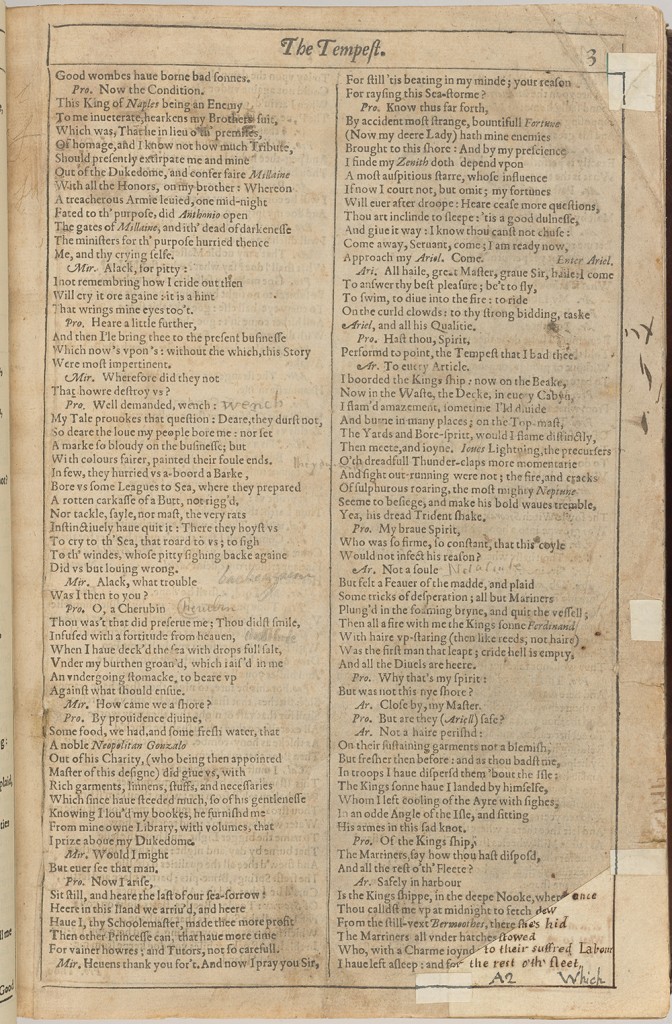 The Tempest.
3
Good wombes haue borne bad sonnes.
Pro. Now the Condition.
This King of Naples being an Enemy
To me inueterate, hearkens my Brothers suit,
Which was, That he in lieu o'th' premises,
Of homage, and I know not how much Tribute,
Should presently extirpate me and mine
Out of the Dukedome, and confer faire Millaine
With all the Honors, on my brother: Whereon
A treacherous Armie leuied, one mid-night
Fated to th' purpose, did Anthonio open
The gates of Millaine, and ith' dead of darkenesse
The ministers for th' purpose hurried thence
Me, and thy crying selfe.
Mir. Alack, for pitty:
I not remembring how I cride out then
Will cry it ore againe: it is a hint
That wrings mine eyes too't.
Pro. Heare a little further,
And then I'le bring thee to the present businesse
Which now's vpon's: without the which, this Story
Were most impertinent.
Mir. Wherefore did they not
That howre destroy vs?
Pro. Well demanded, wench: wench
My Tale prouokes that question: Deare, they durst not,
So deare the loue my people bore me: nor set
A marke so bloudy on the businesse; but
With colours fairer, painted their foule ends.
In few, they hurried vs a-boord a Barke,
Bore vs some Leagues to Sea, where they prepared
A rotten carkasse of a Butt, not rigg'd,
Nor tackle, sayle, nor mast, the very rats
Instinctiuely haue quit it: There they hoyst vs
To cry to th' Sea, that roard to vs; to sigh
To th' windes, whose pitty sighing backe againe
Did vs but louing wrong.
Mir. Alack, what trouble
Was I then to you?
Pro. O, a Cherubin Cherubin
Thou was't that did preserue me; Thou didst smile,
Infused with a fortitude from heauen,
When I haue deck'd the sea with drops full salt,
Vnder my burthen groan'd, which rais'd in me
An vndergoing stomacke, to beare vp
Against what should ensue.
Mir. How came we a shore?
Pro. By prouidence diuine,
Some food, we had, and some fresh water, that
A noble Neopolitan Gonzalo
Out of his Charity, (who being then appointed
Master of this designe) did giue vs, with
Rich garments, linnens, stuffs, and necessaries
Which since haue steeded much, so of his gentlenesse
Knowing I lou'd my bookes, he furnishd me
From mine owne Library, with volumes, that
I prize aboue my Dukedome.
Mir. Would I might
But euer see that man.
Pro. Now I arise,
Sit still, and heare the last of our sea-sorrow:
Heere in this Iland we arriu'd, and heere
Haue I, thy Schoolemaster, made thee more profit
Then other Princesse can, that haue more time
For vainer howres; and Tutors, not so carefull.
Mir. Heuens thank you for't. And now I pray you Sir,
For still 'tis beating in my minde; your reason
For raysing this Sea-storme?
Pro. Know thus far forth,
By accident most strange, bountifull Fortune
(Now my deere Lady) hath mine enemies
Brought to this shore: And by my prescience
I finde my Zenith doth depend vpon
A most auspitious starre, whose influence
If now I court not, but omit; my fortunes
Will euer after droope: Heare cease more questions,
Thou art inclinde to sleepe: 'tis a good dulnesse,
And giue it way: I know thou canst not chuse:
Come away, Seruant, come; I am ready now,
Approach my Ariel. Come. Enter Ariel.
Ari. All haile, great Master, graue Sir, haile: I come
To answer thy best pleasure; be't to fly,
To swim, to diue into the fire: to ride
On the curld clowds: to thy strong bidding, taske
Ariel, and all his Qualitie.
Pro. Hast thou, Spirit,
Performd to point, the Tempest that I bad thee.
Ar. To euery Article.
I boorded the Kings ship: now on the Beake,
Now in the Waste, the Decke, in euery Cabyn,
I flam'd amazement, sometime I'ld diuide
And burne in many places; on the Top-mast,
The Yards and Bore-spritt, would I flame distinctly,
Then meete, and ioyne. Ioues Lightning, the precursers
O'th dreadfull Thunder-claps more momentarie
And sight out-running were not; the fire, and cracks
Of sulphurous roaring, the most mighty Neptune
Seeme to besiege, and make his bold waues tremble,
Yea, his dread Trident shake.
Pro. My braue Spirit,
Who was so firme, so constant, that this coyle
Would not infect his reason?
Ar. Not a soule
But felt a Feauer of the madde, and plaid
Some tricks of desperation; all but Mariners
Plung'd in the foaming bryne, and quit the vessell;
Then all a fire with me the Kings sonne Ferdinand
With haire vp-staring (then like reeds, not haire)
Was the first man that leapt; cride hell is empty,
And all the Diuels are heere.
Pro. Why that's my spirit:
But was not this nye shore?
Ar. Close by, my Master.
Pro. But are they (Ariell) safe?
Ar. Not a haire perishd:
On their sustaining garments not a blemish,
But fresher then before: and as thou badst me,
In troops I haue dispersd them 'bout the Isle:
The Kings sonne haue I landed by himselfe,
Whom I left cooling of the Ayre with sighes,
In an odde Angle of the Isle, and sitting
His armes in this sad knot.
Pro. Of the Kings ship,
The Marriners, say how thou hast disposd,
And all the rest o'th' Fleete?
Ar. Safely in harbour
Is the Kings shippe, in the deepe Nooke, where once
Thou calldst me vp at midnight to fetch dew
From the still-vext Bermoothes, there she's hid
The Marriners all vnder hatches stowed
Who, with a Charme ioynd to their suffred Labour
I haue left asleep: and for the rest o'th' fleet,
A2 Which